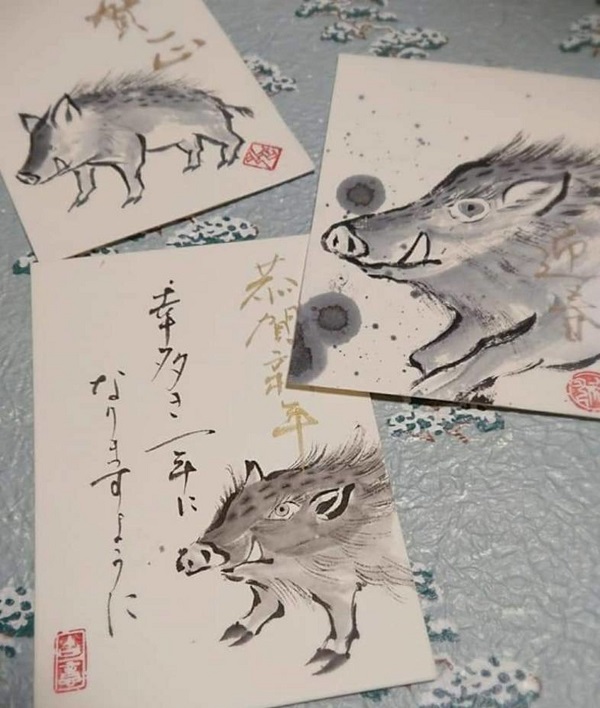 賀正
迎春
恭賀新年
幸多き一年に
なりますように